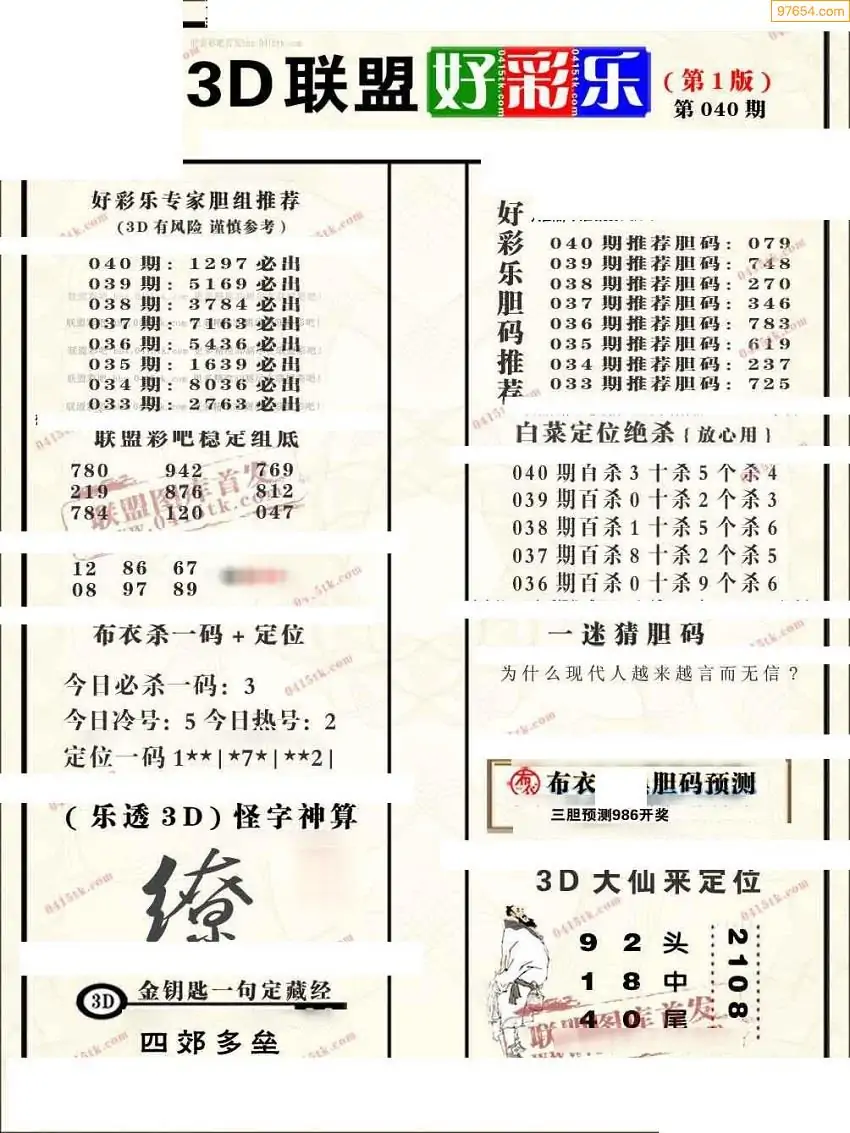 97654.com
3D联盟好彩乐
(第1版)
第040期
好彩乐专家胆组推荐
(3D有风险 谨慎参考)
040期: 1297必出
039期: 5169必出
038期: 3784必出
037期: 7163必出
036期: 5436必出
035期: 1639必出
034期: 8036必出
033期: 2763必出
联盟彩吧稳定组底
780 942 769
219 876 812
784 120 047
12 86 67
08 97 89
布衣杀一码+定位
今日必杀一码: 3
今日冷号: 5 今日热号: 2
定位一码 1**|*7*|**2|
(乐透3D) 怪字神算
3D 金钥匙一句定藏经
四郊多垒
好彩乐胆码推荐
040期推荐胆码: 079
039期推荐胆码: 748
038期推荐胆码: 270
037期推荐胆码: 346
036期推荐胆码: 783
035期推荐胆码: 619
034期推荐胆码: 237
033期推荐胆码: 725
白菜定位绝杀{放心用}
040期百杀3十杀5个杀4
039期百杀0十杀2个杀3
038期百杀1十杀5个杀6
037期百杀8十杀2个杀5
036期百杀0十杀9个杀6
一迷猜胆码
为什么现代人越来越言而无信?
布衣 胆码预测
三胆预测986开奖
3D大仙来定位
9 2 头
1 8 中
4 0 尾
2108
联盟图库首发
www.0415tk.com
0415tk.com